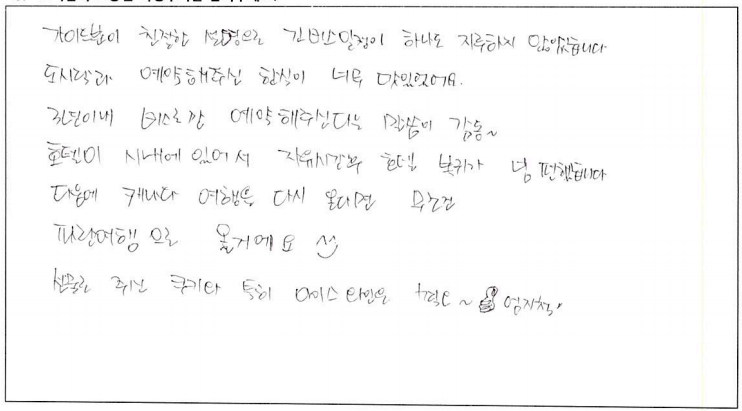 가이드분이 친절한 설명으로 긴버스일정이 하나도 지루하지 않았습니다
도시락과 예약해주신 한식이 너무 맛있었어요.
3년이내 버스로만 예약해주신다는 말씀이 감동~
호텔이 시내에 있어서 자유시간후 호텔 복귀가 넘 편했습니다
다음에 캐나다 여행을 다시 온다면 무조건
파란여행 으로 올거에요
선물로 주신 쿠키와 특히 아이스와인은 ~ 엄지척